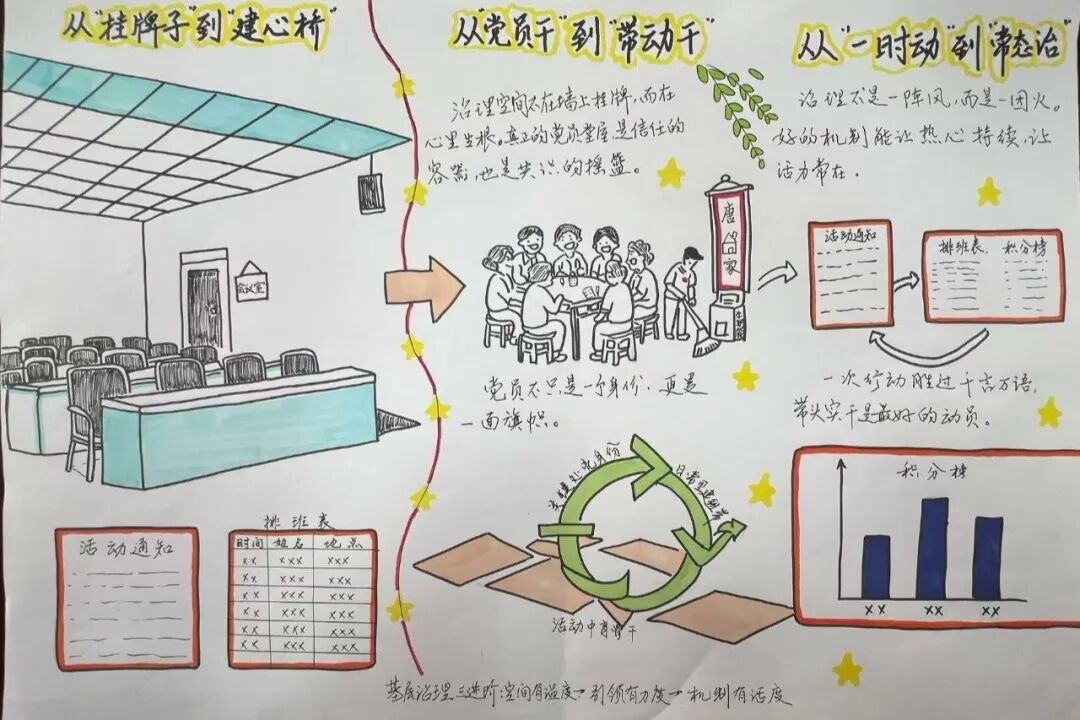 从"挂牌子"到"建心桥"
会议室
活动通知
排班表
时间 姓名 地点
XX XXX XXX
XX XXX XXX
XX XXX XXX
XX XXX XXX
XX XXX XXX
XX XXX XXX
从"党员干"到"带动干"
治理空间不在墙上挂牌，而在
心里生根。真正的党员堂屋是信任的
容器，也是共识的摇篮。
唐
家
党员不只是一个身份，更是
一面旗帜。
活动中育骨干
从"一时动"到"常态治"
治理不是一阵风，而是一团火。
好的机制能让热心持续，让
活力常在。
活动通知
排班表 积分榜
一次行动胜过千言万语，
带头实干是最好的动员。
积分榜
XX XX XX
基层治理三进阶：空间有温度→引领有力度→机制有活度